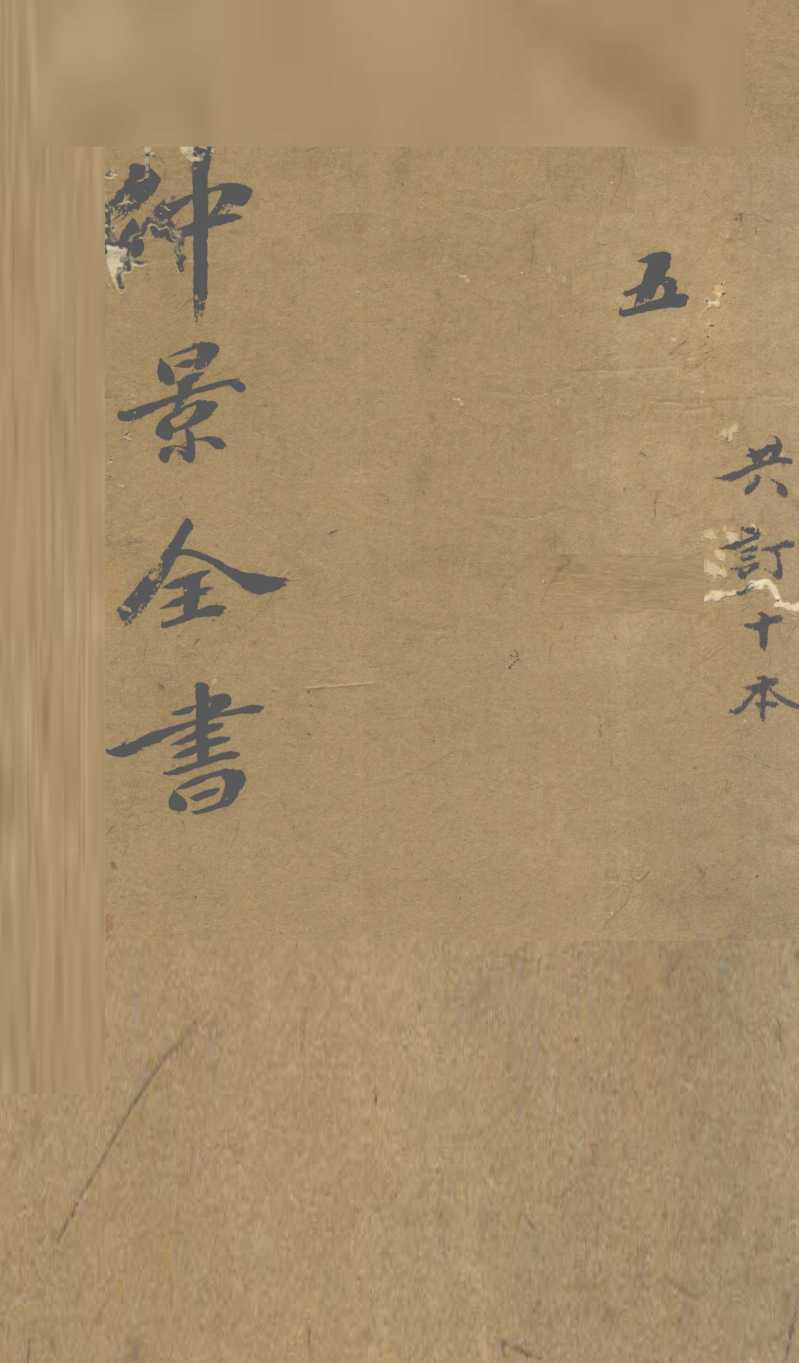 共訂十本
五
仲景全書